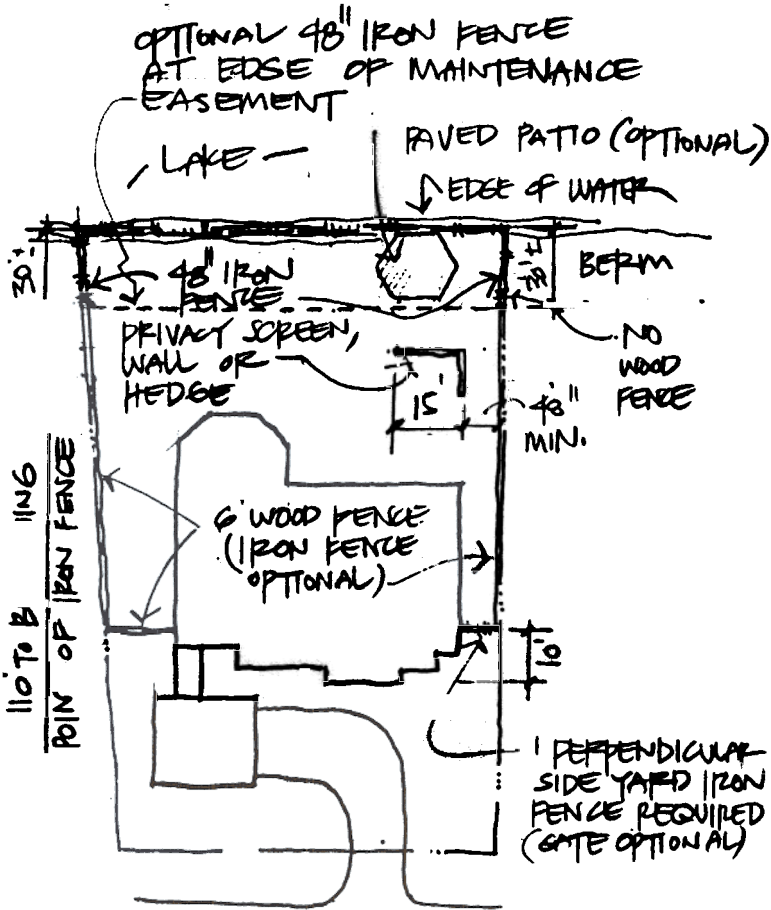 OPTIONAL 48" IRON FENCE
AT EDGE OF MAINTENANCE
EASEMENT
LAKE
PAVED PATIO (OPTIONAL)
EDGE OF WATER
30'±
48" IRON
FENCE
30'±
BERM
PRIVACY SCREEN,
WALL OR
HEDGE
NO
WOOD
FENCE
15'
48"
MIN.
6' WOOD FENCE
(IRON FENCE
OPTIONAL)
110' TO B IING
POIN OF IRON FENCE
10'
PERPENDICULAR
SIDE YARD IRON
FENCE REQUIRED
(GATE OPTIONAL)